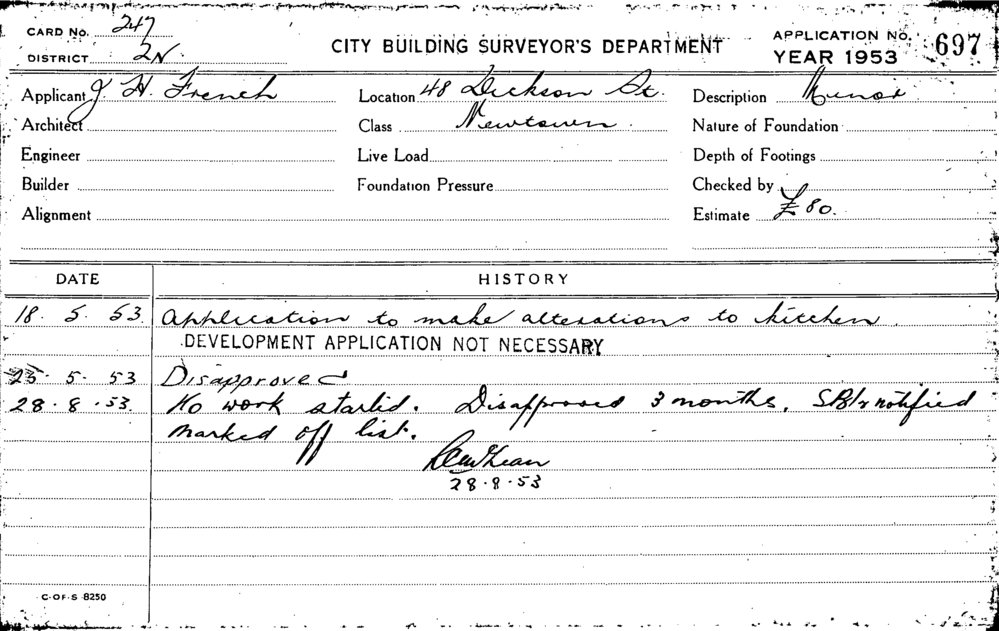 CARD No. 247
DISTRICT 2N
CITY BUILDING SURVEYOR'S DEPARTMENT
APPLICATION No. 697
YEAR 1953
Applicant J. H. French
Location 48 Dickson St.
Description Minor
Architect
Class Newtown
Nature of Foundation
Engineer
Live Load
Depth of Footings
Builder
Foundation Pressure
Checked by
Alignment
Estimate £80.
DATE HISTORY
18. 5. 53. Application to make alterations to kitchen
DEVELOPMENT APPLICATION NOT NECESSARY
25. 5. 53 Disapproved
28. 8. 53. No work started. Disapproved 3 months. notified
marked off list.
28.8.53
C-OF-S 8250